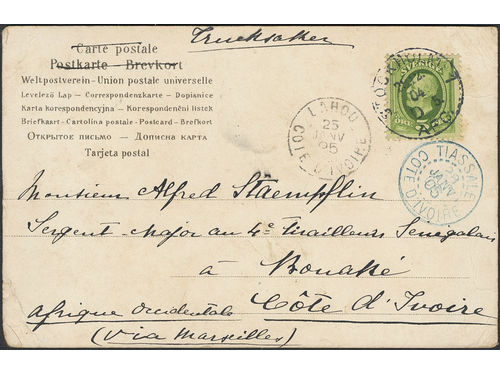 Trycksaker
Carte postale
Postkarte – Brevkort
Weltpostverein - Union postale universelle
Levelező Lap — Correspondenzkarte — Dopisnice
Karta korespondencyjna — Korespondenční lístek
Briefkaart — Cartolina postale — Postcard — Brefkort
Открытое письмо — Дописна карта
Tarjeta postal
SVERIGE
STOCKHOLM
LAHOU
25
JANV
05
COTE D'IVOIRE
TIASSALE
JANV
05
COTE D'IVOIRE
Monsieur Alfred Staempflin
Sergent-Major au 4e Tirailleurs Senegalais
à Bouaké
Afrique Occidentale Côte d'Ivoire
(Via Marseilles)